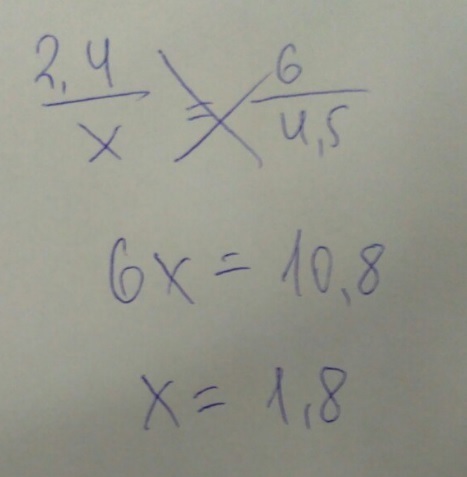 2,4 / x = 6 / 4,5
6x = 10,8
x = 1,8